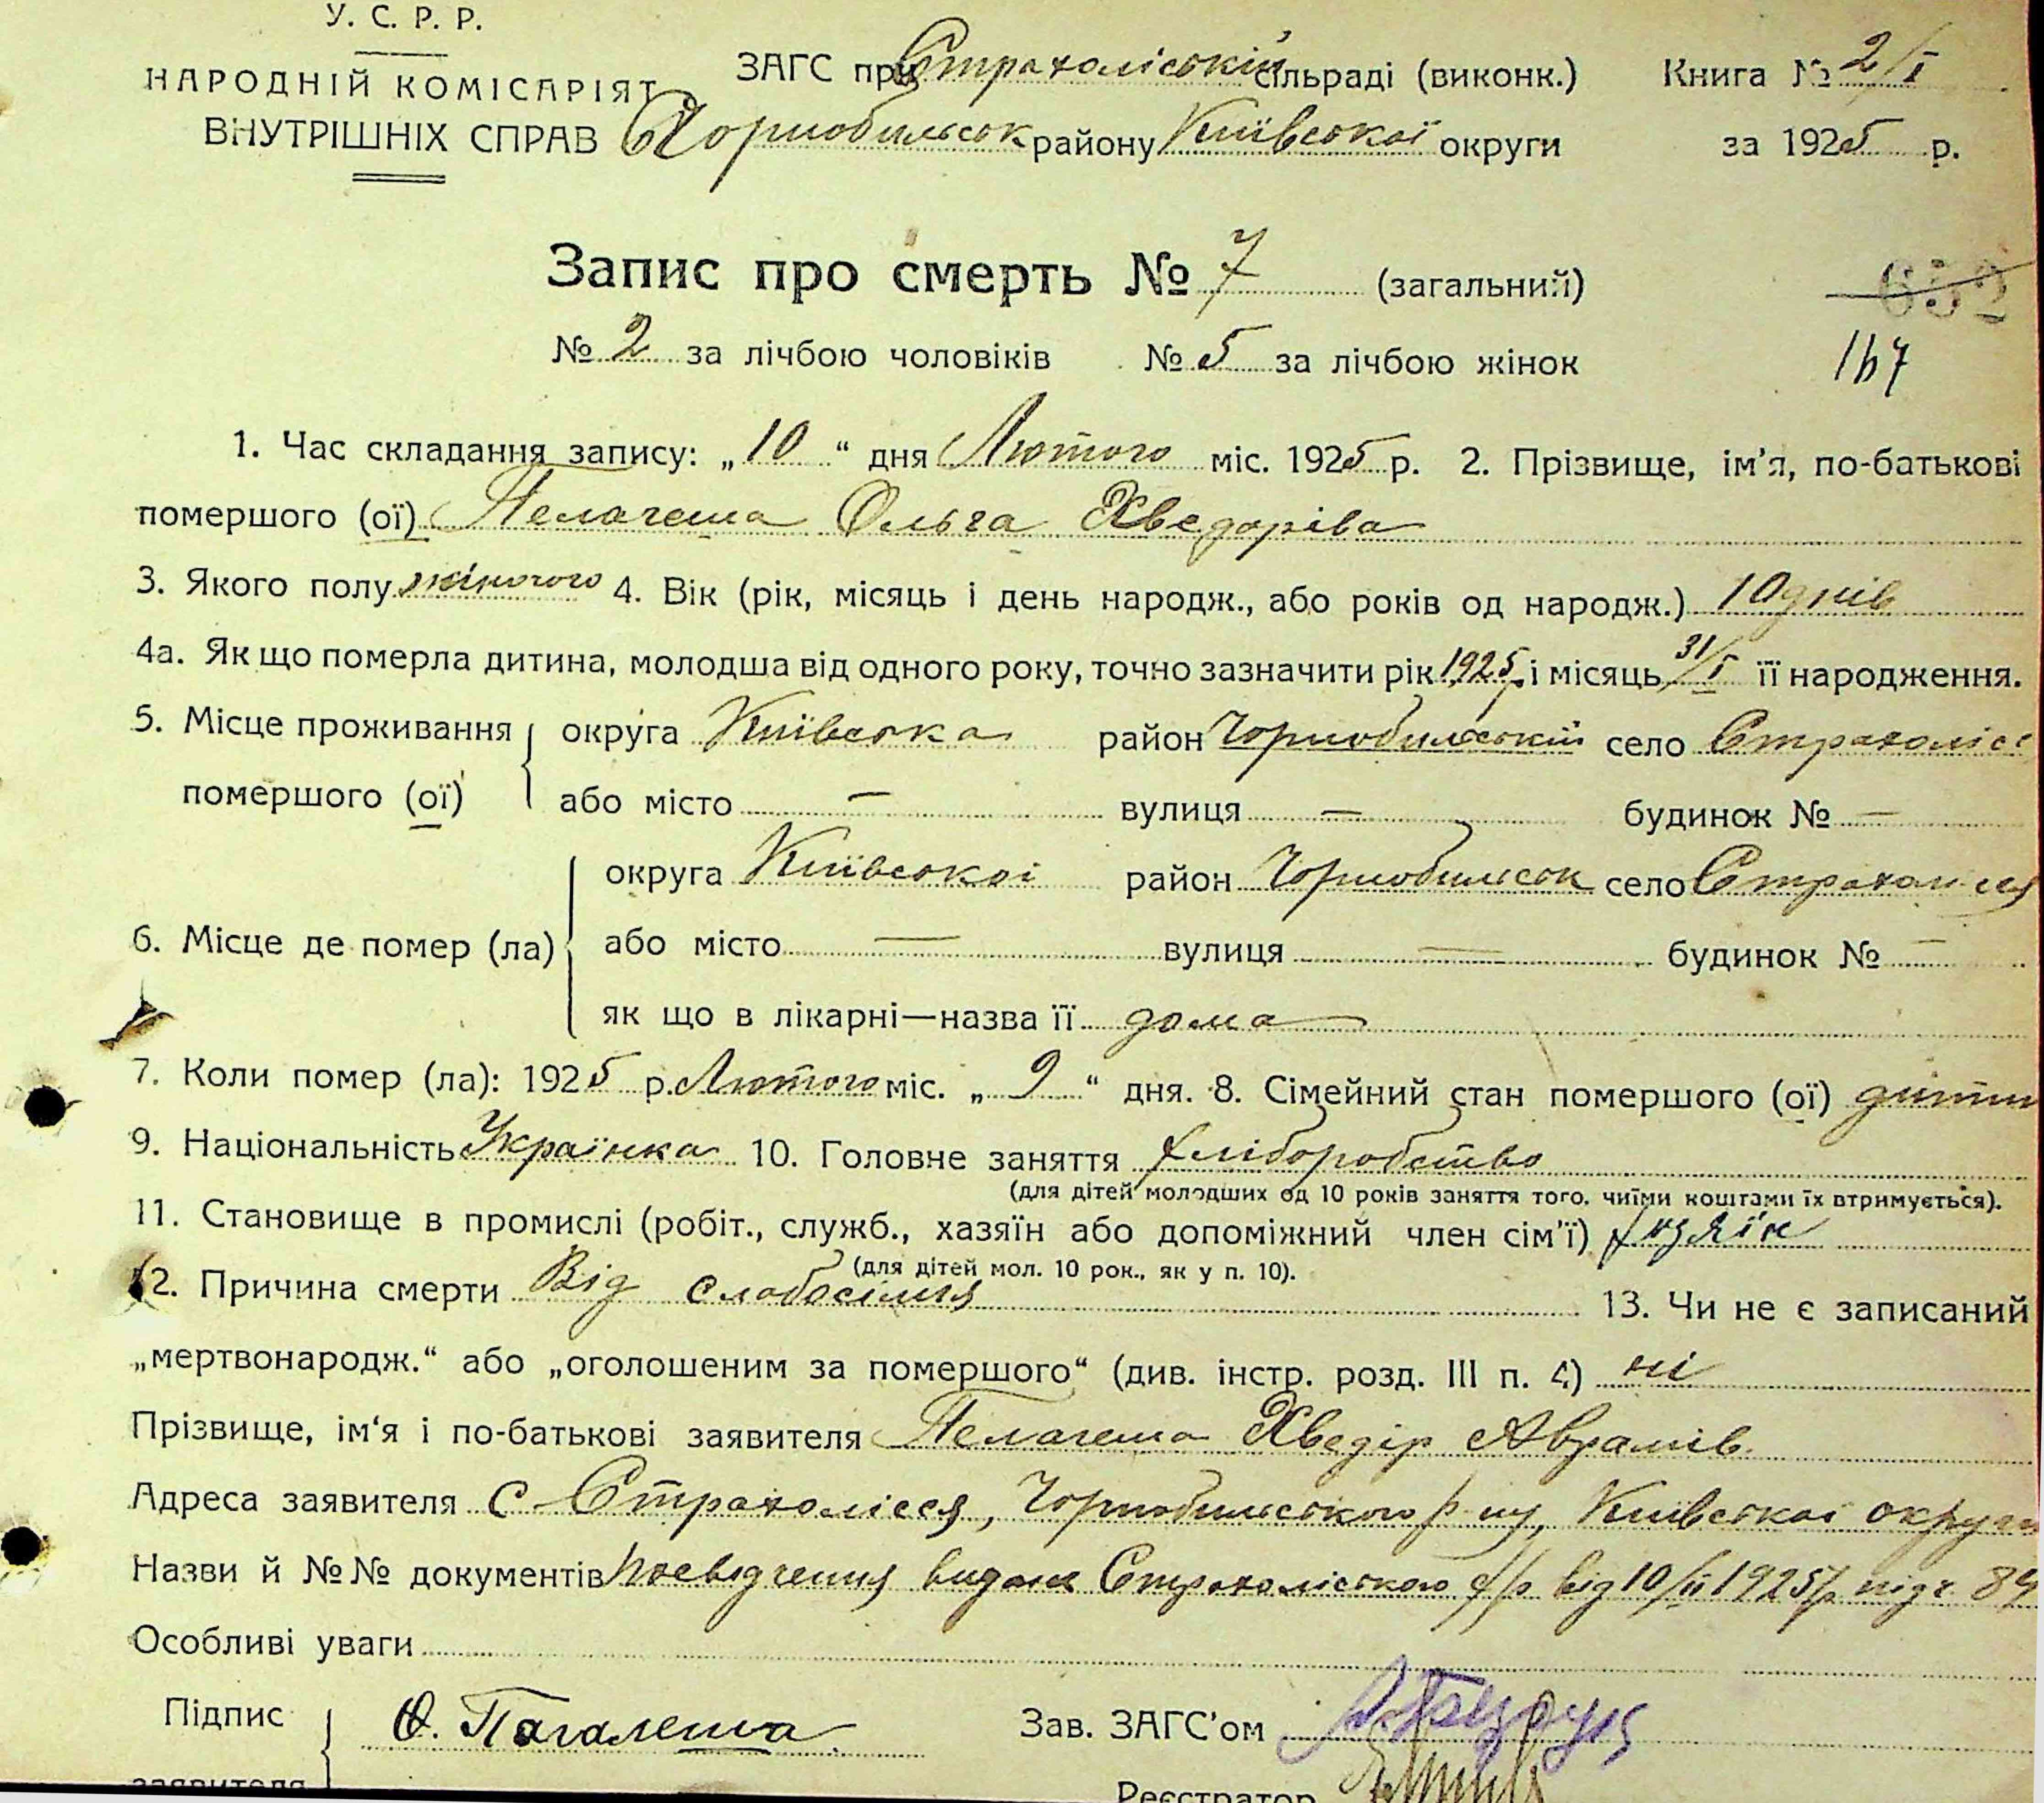 У. С. Р. Р.
НАРОДНІЙ КОМІСАРІЯТ
ВНУТРІШНІХ СПРАВ
ЗАГС при Страхоліській сільраді (виконк.) Книга № 2/I
Чорнобильськ району Київської округи за 1925 р.
Запис про смерть № 7 (загальний)
652
№ 2 за лічбою чоловіків № 5 за лічбою жінок
167
1. Час складання запису: „10“ дня Лютого міс. 1925 р. 2. Прізвище, ім’я, по-батькові
помершого (ої) Пелагеша Ольга Хведорівa
3. Якого полу жіночого 4. Вік (рік, місяць і день народж., або років од народж.) 10 днів
4а. Як що померла дитина, молодша від одного року, точно зазначити рік 1925 р. і місяць 31/I її народження.
5. Місце проживання помершого (ої) округа Київська район Чорнобильський село Страхоліссє
або місто — вулиця — будинок № —
6. Місце де помер (ла) округа Київської район Чорнобильськ село Страхолісся
або місто — вулиця — будинок № —
як що в лікарні—назва її дома
7. Коли помер (ла): 1925 р. Лютого міс. „9“ дня. 8. Сімейний стан помершого (ої) дитин
9. Національність Українка 10. Головне заняття хліборобство
(для дітей молодших од 10 років заняття того, чиїми коштами їх втримується).
11. Становище в промислі (робіт., служб., хазяїн або допоміжний член сім’ї) хазяїн
(для дітей мол. 10 рок., як у п. 10).
12. Причина смерти Від слабосілля 13. Чи не є записаний
„мертвонародж.“ або „оголошеним за помершого“ (див. інстр. розд. III п. 4) ні
Прізвище, ім‘я і по-батькові заявителя Пелагеша Хведір Аврамів
Адреса заявителя с Страхолісся, Чорнобильського р-ну, Київської округи
Назви й №№ документів Посвідчення видане Страхоліською с/р від 10/II 1925 р. під ч. 89
Особливі уваги
Підпис заявителя Ф. Пагалеша Зав. ЗАГС’ом
Реєстратор